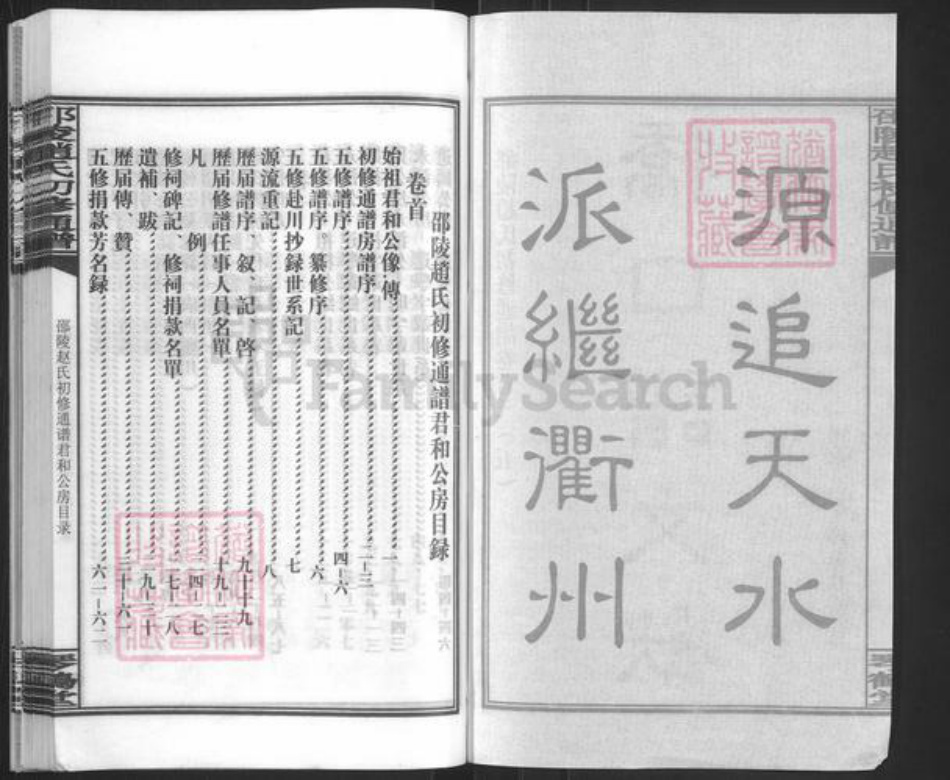 源追天水
派繼衢州
邵陵趙氏初修通譜君和公房目録
卷首
始祖君和公像、傳 一
初修通譜房譜序 二-三
五修譜序 四-六
五修譜序 纂修序 六
五修赴川抄録世系記 七
源流重記 八
歷屆譜序 叙 記 啓 九-十九
歷屆修譜任事人員名單
凡 例
修祠碑記、修祠捐款名單
遺補、跋
歷屆傳、贊
五修捐款芳名録 六一-六二
邵陵趙氏初修通譜
邵陵赵氏初修通谱君和公房目录
FamilySearch